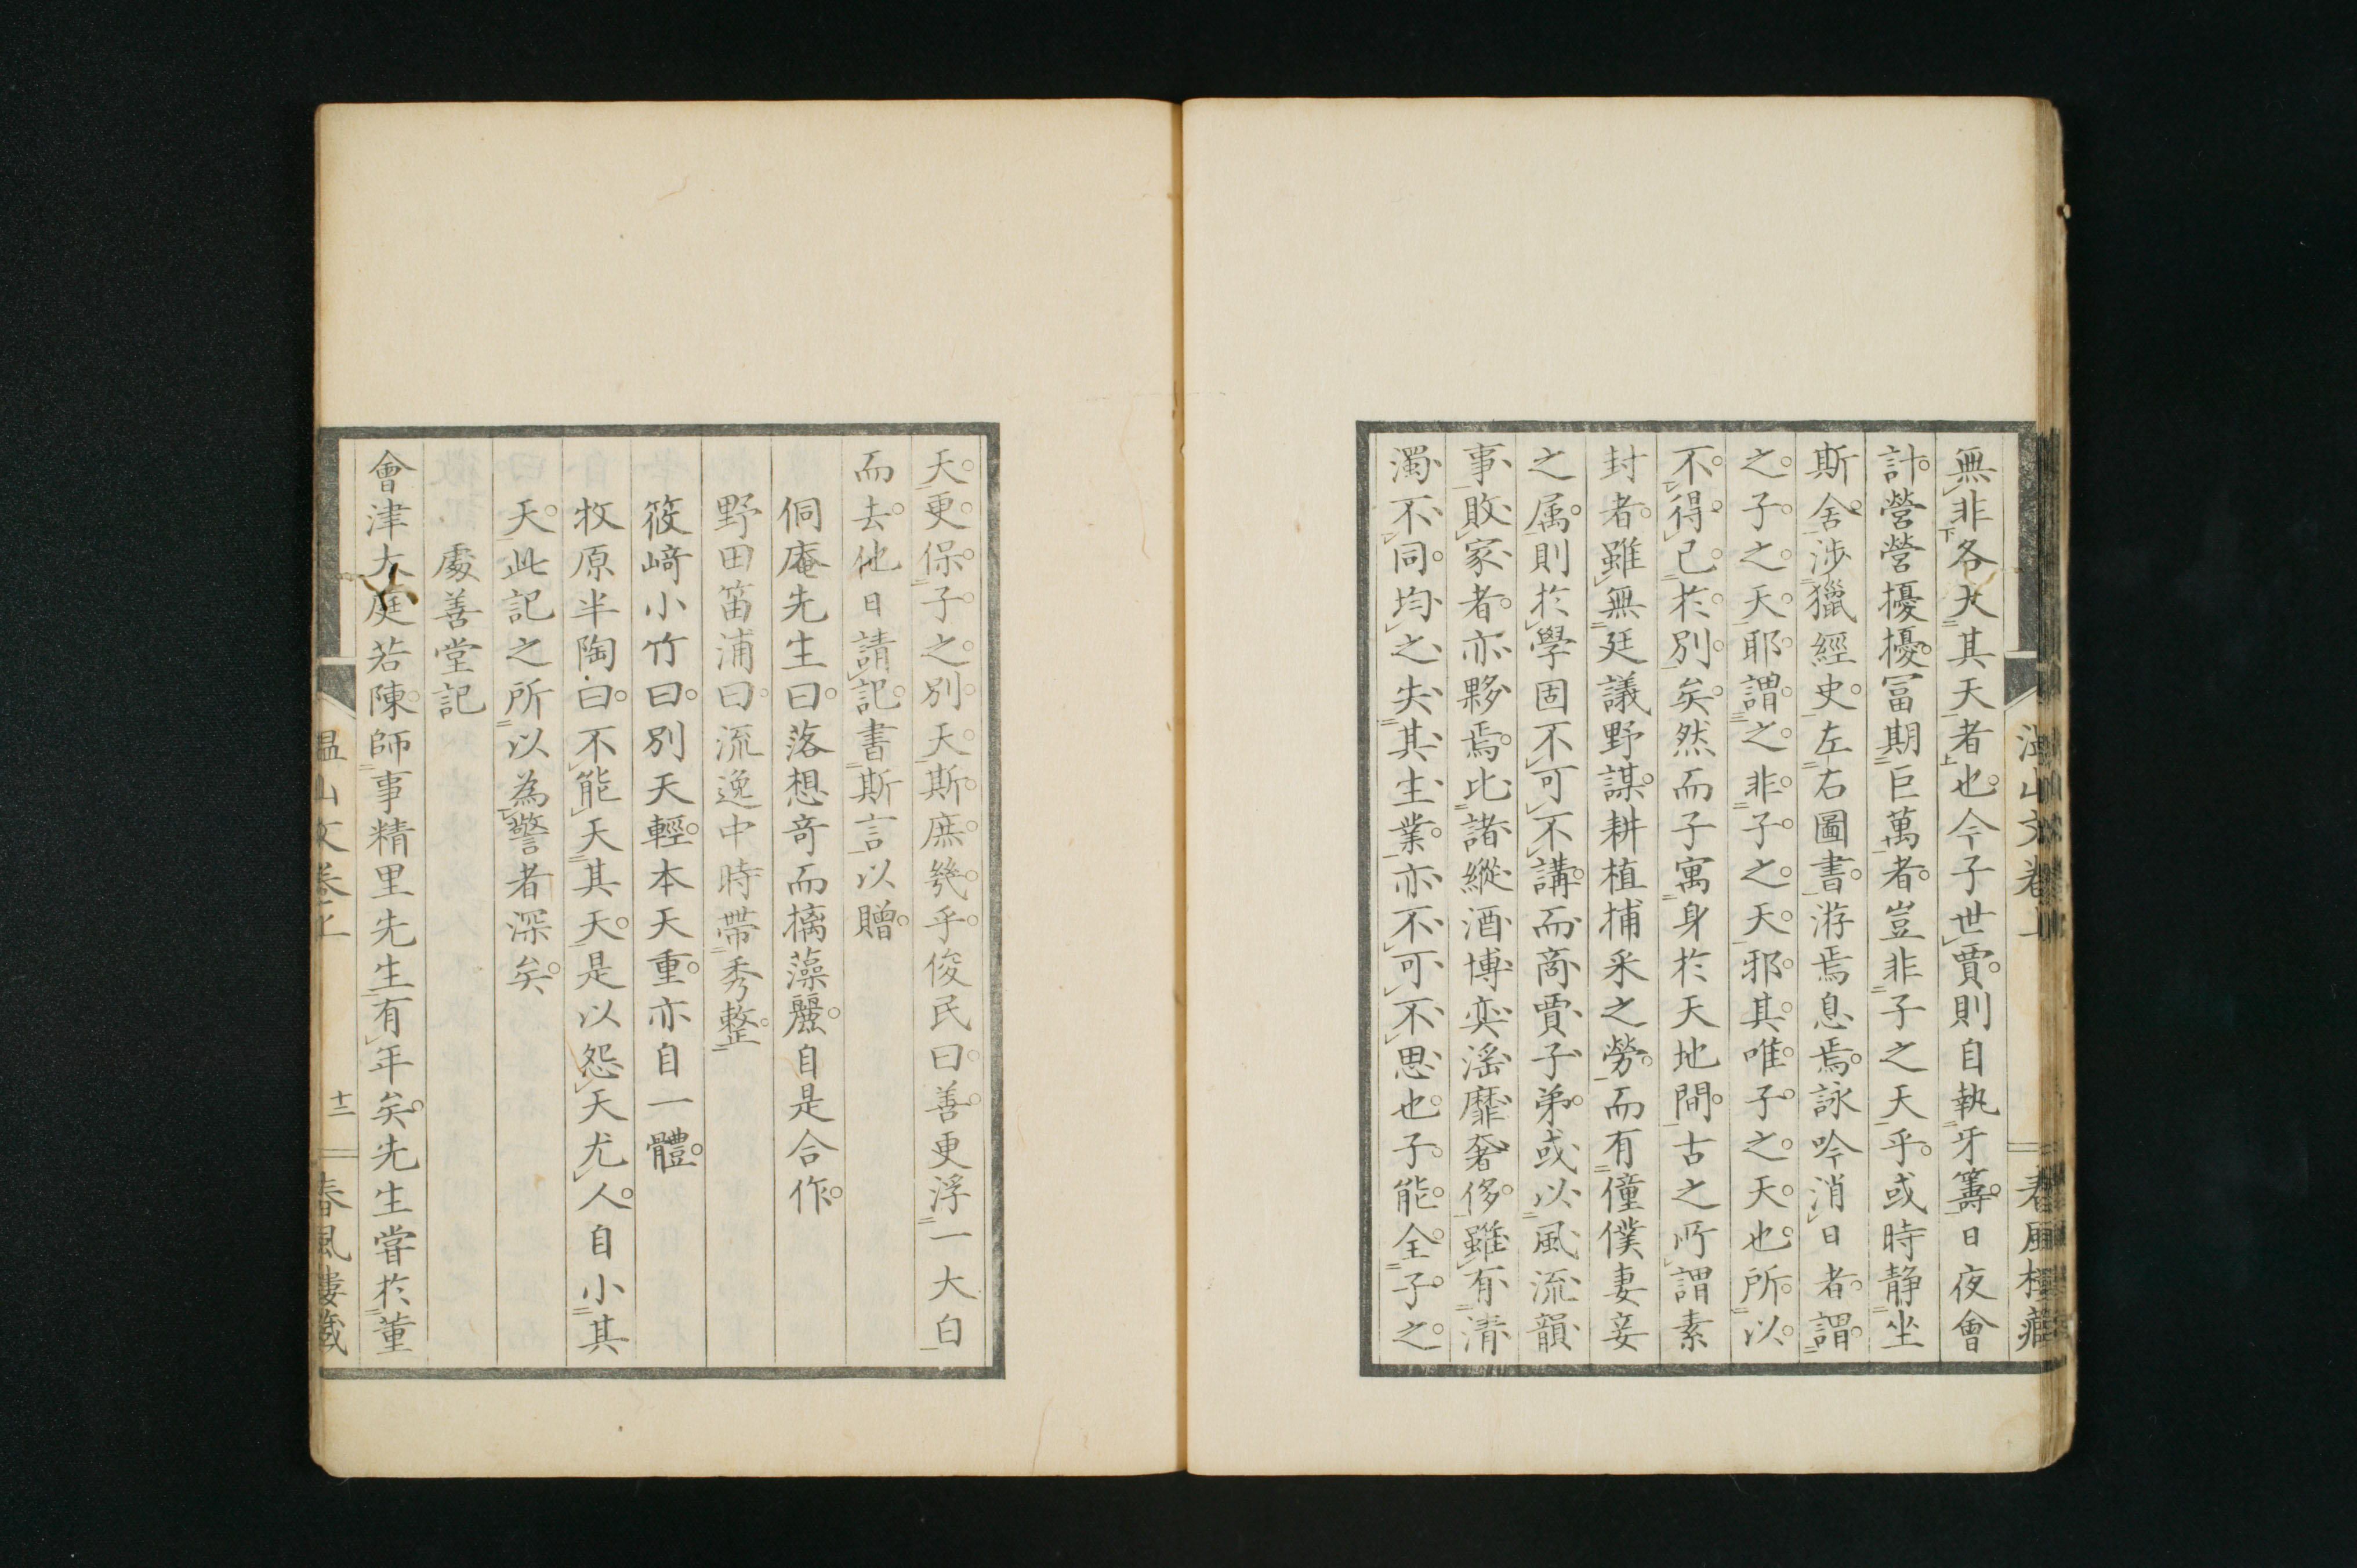 無非各天其天者也今子世賈則自執牙籌日夜會
計營營擾擾冨期巨萬者豈非子之天乎或時静坐
斯舍渉獵經史左右圖書游焉息焉詠吟消日者謂
之子之天耶謂之非子之天邪其唯子之天也所以
不得已於別矣然而子寓身於天地間古之所謂素
封者雖無廷議野謀耕植捕采之勞而有僮僕妻妾
之属則於學固不可不講而商賈子弟或以風流韻
事敗家者亦夥焉比諸縱酒博奕滛靡奢侈雖有清
濁不同均之失其生業亦不可不思也子能全子之
天更保子之別天斯庶幾乎俊民曰善更浮一大白
而去他日請記書斯言以贈
侗庵先生曰落想竒而摛藻麗自是合作
野田笛浦曰流逸中時帶秀整
筱﨑小竹曰別天輕本天重亦自一體
牧原半陶曰不能天其天是以怨天尤人自小其
天此記之所以為警者深矣
處善堂記
會津大庭若陳師事精里先生有年矣先生嘗於董
温山文卷上
十二
春風樓藏